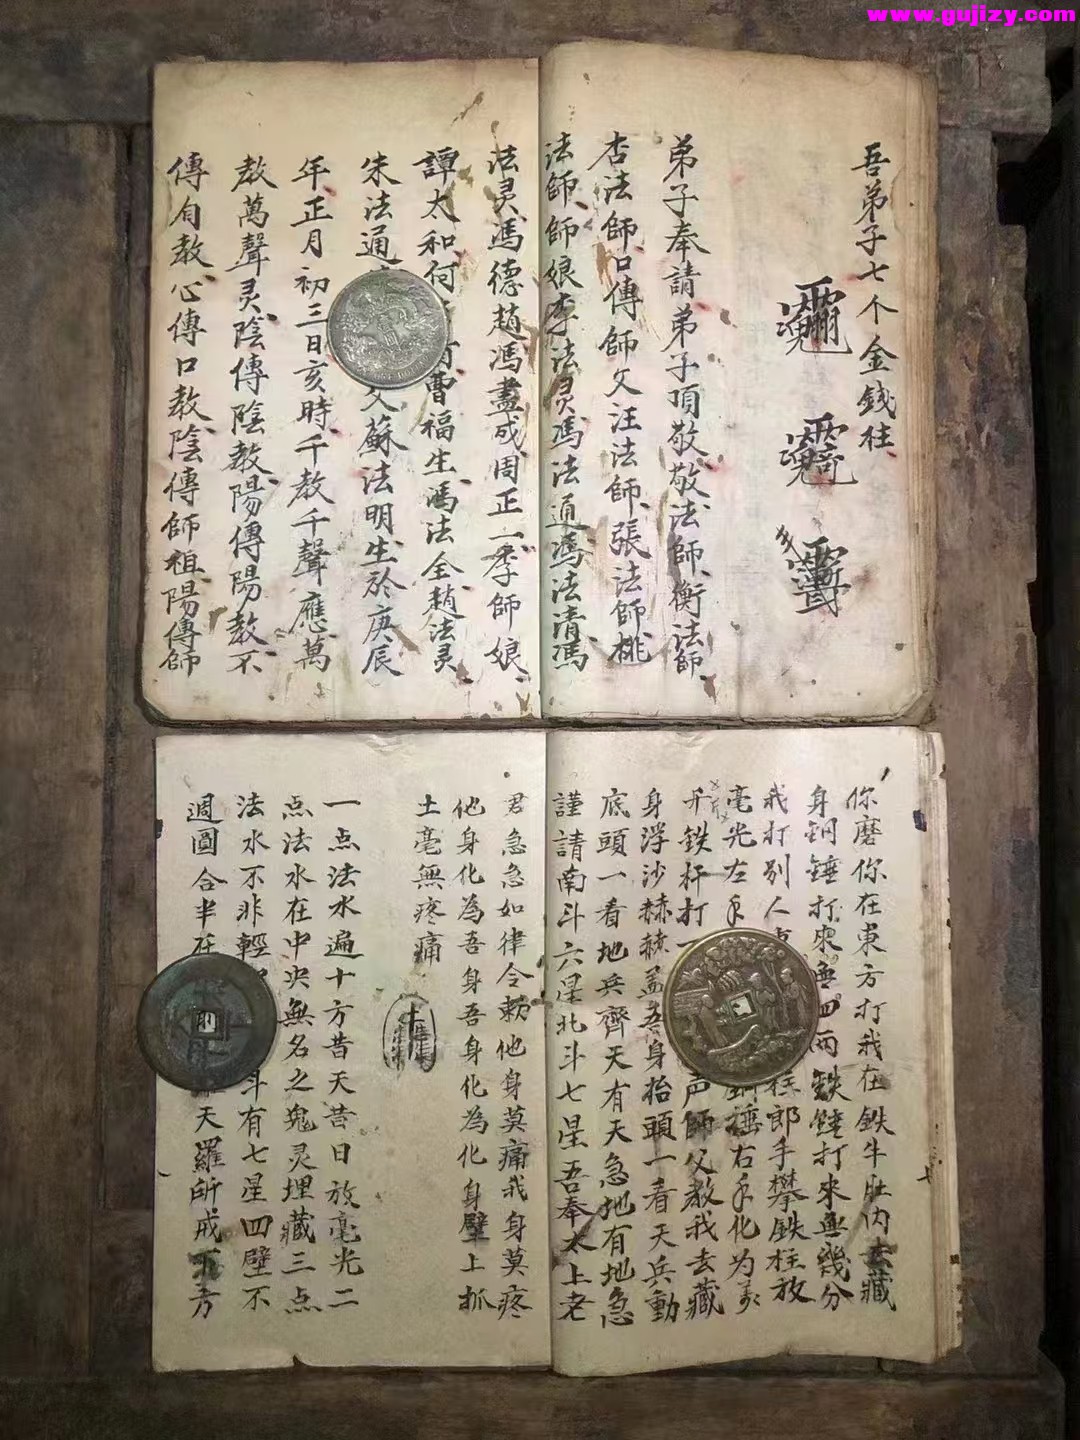 www.gujizy.com
吾弟子七个金錢柱
弟子奉請弟子頂敬敬法師衡法師
杏法師口傳師父汪法師張法師桃
法師師娘李法灵馮法通馮法清馮
法灵馮德趙馮盡成周正一李師娘
譚太和何 曹福生馮法全趙法灵
朱法通 父蘇法明生於庚辰
年正月初三日亥時千教千聲應萬
教萬聲灵陰傳陰教陽傳陽教不
傳自教心傳口教陰傳師祖陽傳師
你磨你在東方打我在鉄牛肚内去藏
身銅錘打來無四両鉄錘打來無幾分
我打别人 柱郎手攀鉄柱放
毫光左手 銅捶右手化为
千鉄杆打一 声師父教我去藏
身浮沙赫赫盖吾身抬頭一看天兵動
底頭一看地兵齊天有天急地有地急
謹請南斗六星北斗七星吾奉太上老
君急急如律令勅他身莫痛我身莫疼
他身化為吾身吾身化為化身壁上抓
土毫無疼痛
一点法水遍十方昔天昔日放毫光二
点法水在中央無名之鬼灵埋藏三点
法水不非輕 斗有七星四壁不
週圓合半在 天羅所戒下方